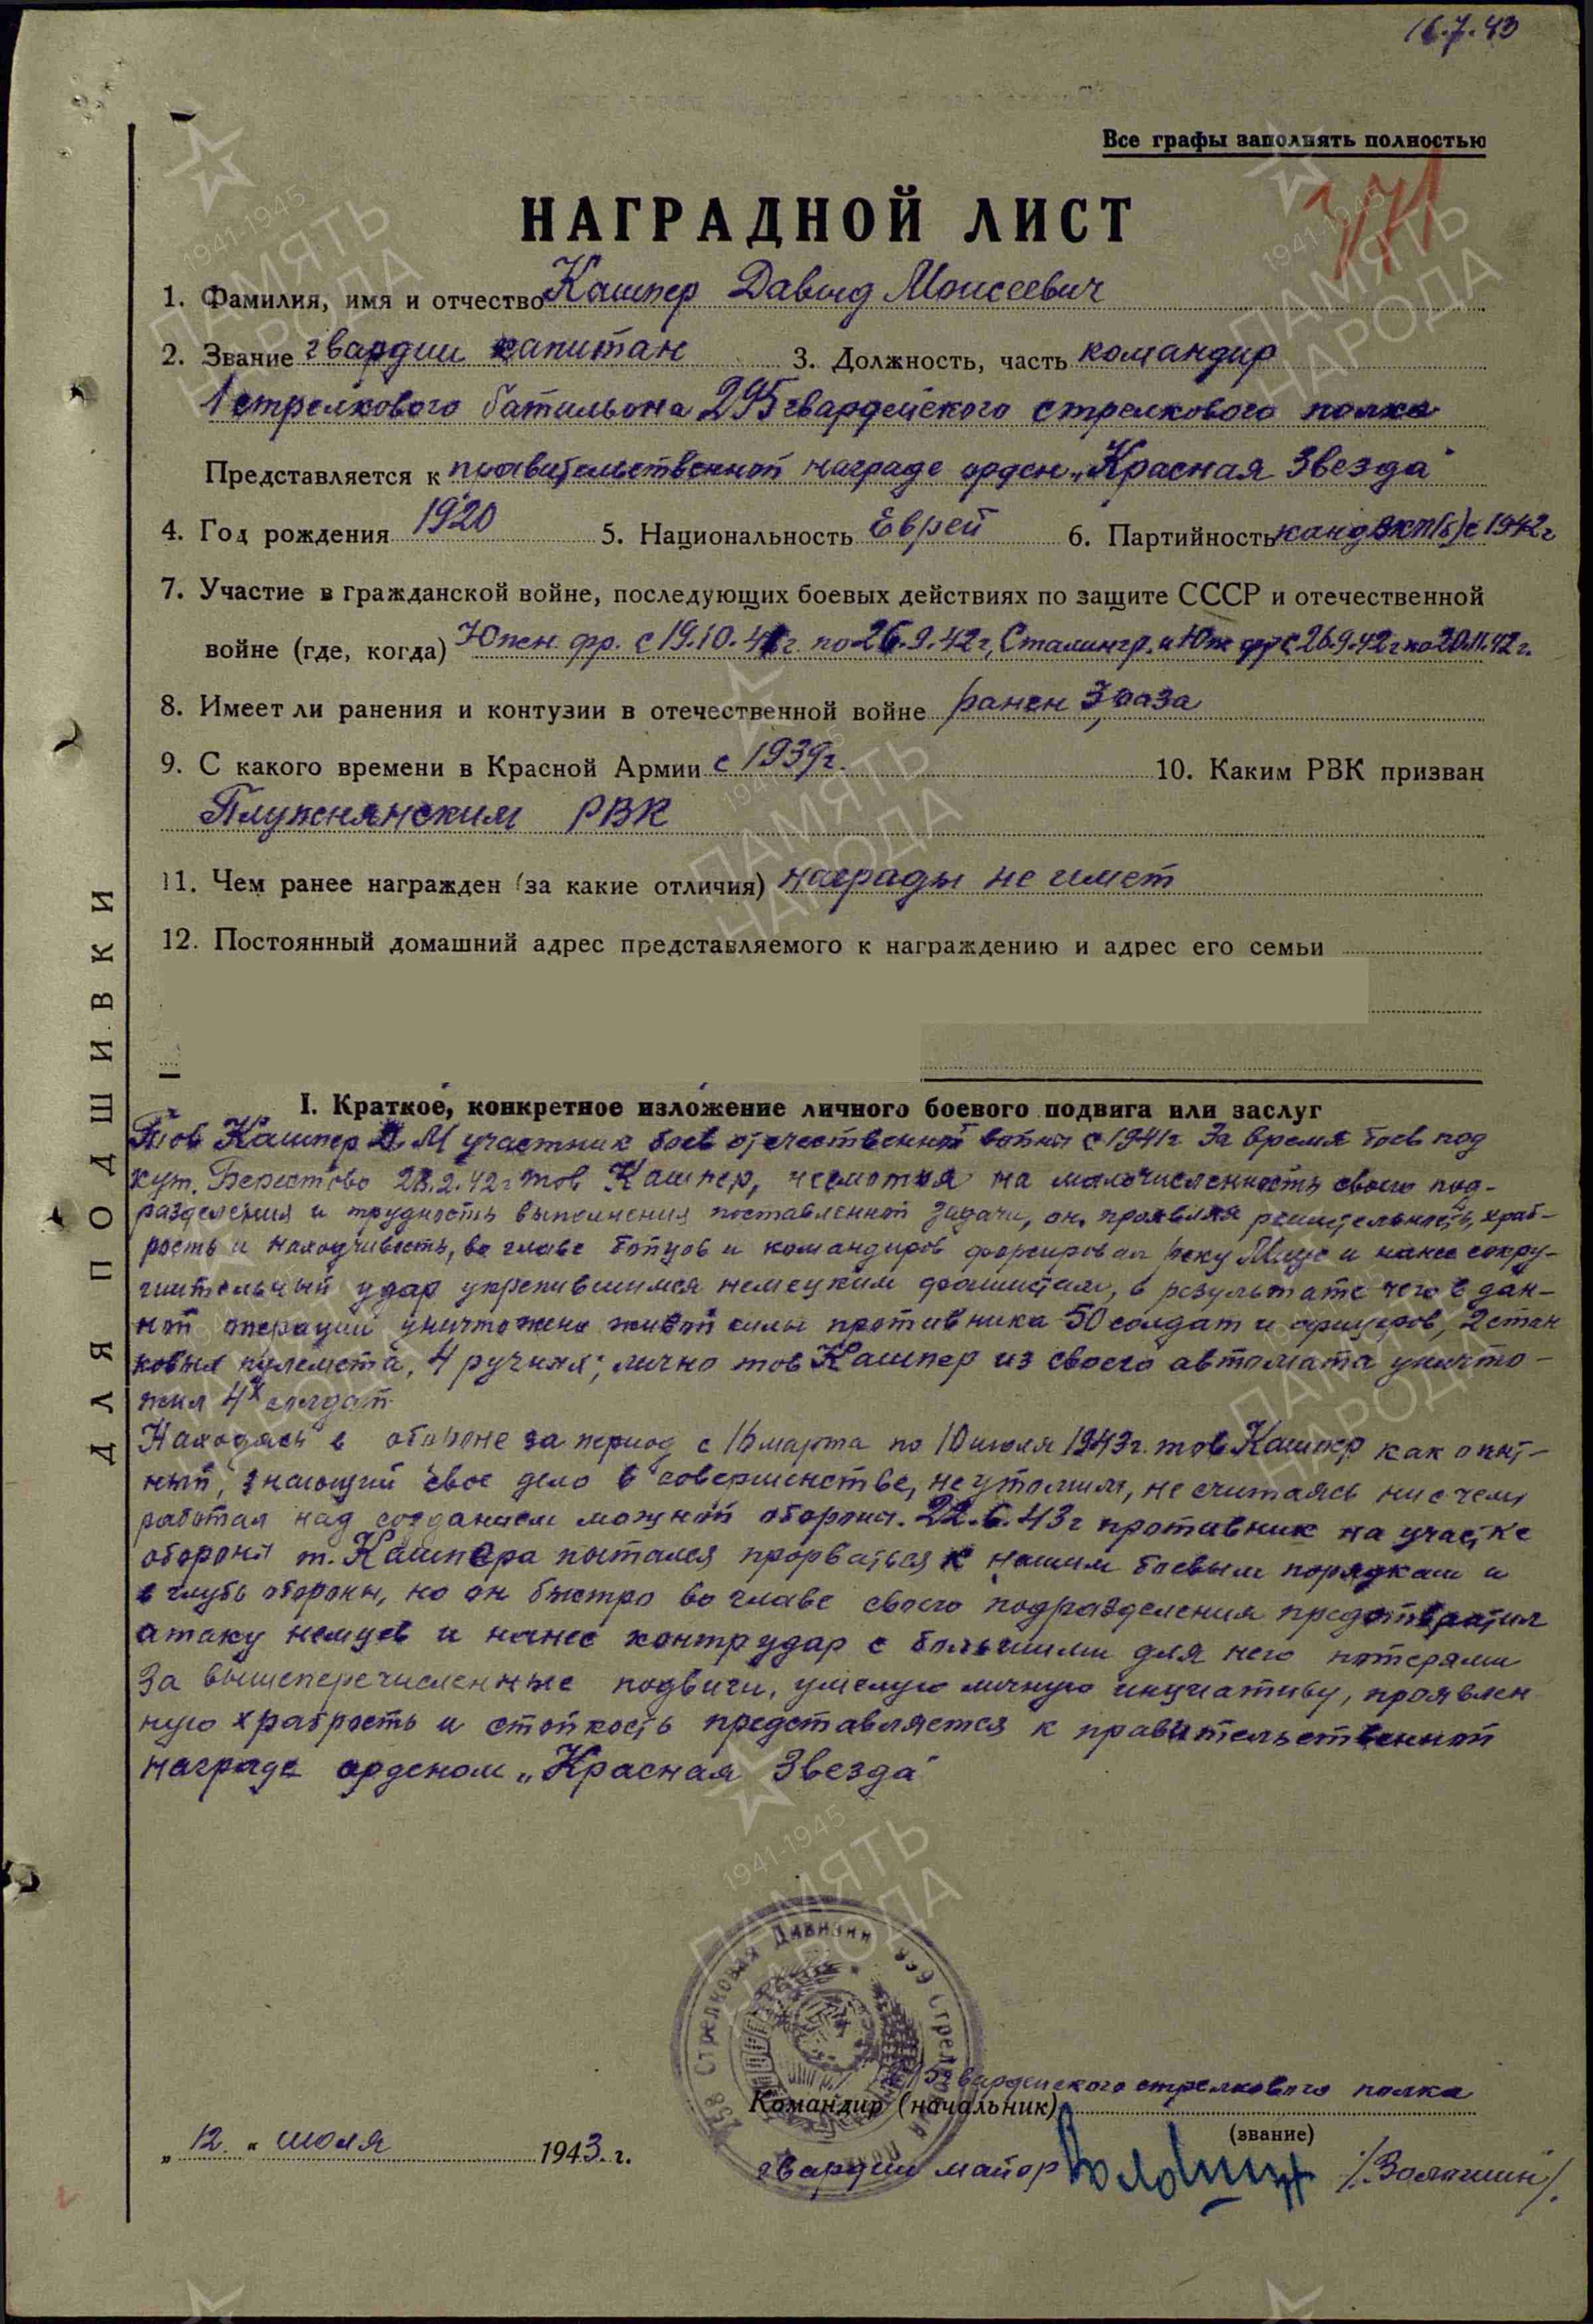 16.7.43
Все графы заполнять полностью
171
НАГРАДНОЙ ЛИСТ
1. Фамилия, имя и отчество Кашпер Давыд Моисеевич
2. Звание гвардии капитан 3. Должность, часть командир
1 стрелкового батильона 295 гвардейского стрелкового полка
Представляется к правительственной награде орден „Красная Звезда"
4. Год рождения 1920 5. Национальность Еврей 6. Партийность канд ВКП(б) с 1942г
7. Участие в гражданской войне, последующих боевых действиях по защите СССР и отечественной
войне (где, когда) Южн. фр. с 19.10.41г. по 26.9.42г, Сталингр. и Юж фр с 26.9.42г по 20.11.42г.
8. Имеет ли ранения и контузии в отечественной войне ранен 3 раза
9. С какого времени в Красной Армии с 1939г. 10. Каким РВК призван
Плужнянским РВК
11. Чем ранее награжден (за какие отличия) награды не имет
12. Постоянный домашний адрес представляемого к награждению и адрес его семьи
ДЛЯ ПОДШИВКИ
I. Краткое, конкретное изложение личного боевого подвига или заслуг
Тов Кашпер Д. М участник боев отечественной войны с 1941г За время боев под
хут. Берестово 28.2.42г тов Кашпер, несмотря на малочисленность своего под-
разделения и трудность выполнения поставленной задачи, он, проявляя решительность, храб-
рость и находчивость, во главе бойцов и командиров форсировал реку Миус и нанес сокру-
шительный удар укрепившимся немецким фашистам, в результате чего в дан-
ной операции уничтожено живой силы противника 50 солдат и офицеров, 2 стан
ковых пулемета, 4 ручных; лично тов Кашпер из своего автомата уничто-
жил 4х солдат.
Находясь в обороне за период с 16 марта по 10 июля 1943г. тов Кашпер как опыт-
ный, знающий свое дело в совершенстве, неутомим, не считаясь ни с чем
работал над созданием мощной обороны. 22.6.43г противник на участке
обороны т. Кашпера пытался прорваться к нашим боевым порядкам и
в глубь обороны, но он быстро во главе своего подразделения предотвратил
атаку немцев и нанес контрудар с большими для него потерями
За вышеперечисленные подвиги, умелую личную инциативу, проявлен
ную храбрость и стойкость представляется к правительственной
награде орденом „Красная Звезда"
258 Стрелковая Дивизия 999 Стрелковый полк
гвардейского стрелкового полка
Командир (начальник)
(звание)
„12." июля 1943. г.
гвардии майор Волошин /Волошин/.
1941-1945
ПАМЯТЬ
НАРОДА